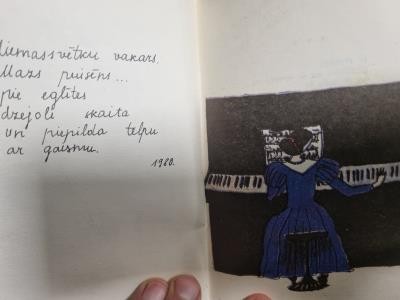 Ziemassvētku vakars,
Mazs puisēns...
pie eglītes
dzejoli skaita
un piepilda telpu
ar gaismu.
1980.